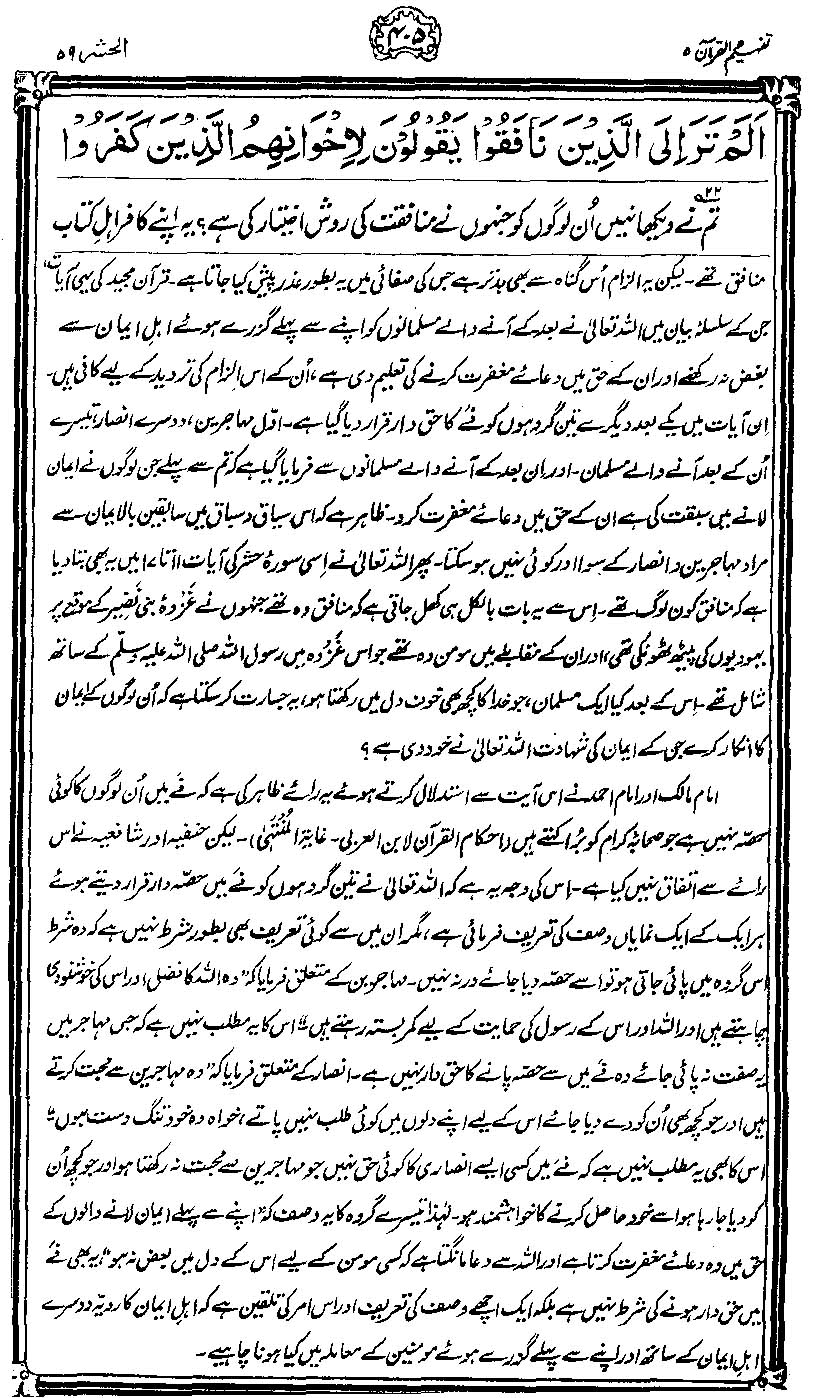 تفہیم القرآن ۵
۴۰۵
الحشر ۵۹
اَلَمْ تَرَ اِلَى الَّذِيْنَ نَافَقُوْا يَقُوْلُوْنَ لِاِخْوَانِهِمُ الَّذِيْنَ كَفَرُوْا
تم نے ۲۲ دیکھا نہیں اُن لوگوں کو جنہوں نے منافقت کی روش اختیار کی ہے؟ یہ اپنے کافر اہلِ کتاب
منافق تھے۔ لیکن یہ الزام اُس گناہ سے بھی بدتر ہے جس کی صفائی میں یہ بطور عذر پیش کیا جاتا ہے۔ قرآن مجید کی یہی آیات
جن کے سلسلۂ بیان میں اللہ تعالیٰ نے بعد کے آنے والے مسلمانوں کو اپنے سے پہلے گزرے ہوئے اہل ایمان سے
بغض نہ رکھنے اور ان کے حق میں دعائے مغفرت کرنے کی تعلیم دی ہے، اُن کے اس الزام کی تردید کے لیے کافی ہیں۔
ان آیات میں یکے بعد دیگرے تین گروہوں کو فَے کا حق دار قرار دیا گیا ہے۔ اوّل مہاجرین، دوسرے انصار، تیسرے
اُن کے بعد آنے والے مسلمان۔ اور ان بعد کے آنے والے مسلمانوں سے فرمایا گیا ہے کہ تم سے پہلے جن لوگوں نے ایمان
لانے میں سبقت کی ہے ان کے حق میں دعائے مغفرت کرو۔ ظاہر ہے کہ اس سیاق و سباق میں سابقین بالایمان سے
مراد مہاجرین و انصار کے سوا اور کوئی نہیں ہو سکتا۔ پھر اللہ تعالیٰ نے اِسی سورۂ حشر کی آیات ۱۱ تا ۱۷ میں یہ بھی بتا دیا
ہے کہ منافق کون لوگ تھے۔ اِس سے یہ بات بالکل ہی کھل جاتی ہے کہ منافق وہ تھے جنہوں نے غَزْوۂ بنی نَضِیر کے موقع پر
یہودیوں کی پیٹھ ٹھونکی تھی، اور ان کے مقابلے میں مومن وہ تھے جو اس غَزْوہ میں رسول اللہ صلی اللہ علیہ وسلّم کے ساتھ
شامل تھے۔ اِس کے بعد کیا ایک مسلمان، جو خدا کا کچھ بھی خوف دل میں رکھتا ہو، یہ جسارت کر سکتا ہے کہ اُن لوگوں کے ایمان
کا انکار کرے جن کے ایمان کی شہادت اللہ تعالیٰ نے خود دی ہے؟
امام مالک اور امام احمد نے اس آیت سے استدلال کرتے ہوئے یہ رائے ظاہر کی ہے کہ فَے میں اُن لوگوں کا کوئی
حصّہ نہیں ہے جو صحابۂ کرام کو بُرا کہتے ہیں (احکام القرآن لابن العربی۔ غایۃ المُنْتَہیٰ)۔ لیکن حنفیہ اور شافعیہ نے اس
رائے سے اتفاق نہیں کیا ہے۔ اس کی وجہ یہ ہے کہ اللہ تعالیٰ نے تین گروہوں کو فَے میں حصّہ دار قرار دیتے ہوئے
ہر ایک کے ایک نمایاں وصف کی تعریف فرمائی ہے، مگر ان میں سے کوئی تعریف بھی بطور شرط نہیں ہے کہ وہ شرط
اس گروہ میں پائی جاتی ہو تو اسے حصّہ دیا جائے ورنہ نہیں۔ مہاجرین کے متعلق فرمایا کہ "وہ اللہ کا فضل اور اس کی خوشنودی
چاہتے ہیں اور اللہ اور اس کے رسول کی حمایت کے لیے کمر بستہ رہتے ہیں" اس کا یہ مطلب نہیں ہے کہ جس مہاجر میں
یہ صفت نہ پائی جائے وہ فَے میں سے حصّہ پانے کا حق دار نہیں ہے۔ انصار کے متعلق فرمایا کہ "وہ مہاجرین سے محبت کرتے
ہیں اور جو کچھ بھی اُن کو دے دیا جائے اس کے لیے اپنے دلوں میں کوئی طلب نہیں پاتے، خواہ وہ خود تنگ دست ہوں"
اس کا بھی یہ مطلب نہیں ہے کہ فَے میں کسی ایسے انصاری کا کوئی حق نہیں جو مہاجرین سے محبت نہ رکھتا ہو اور جو کچھ اُن
کو دیا جا رہا ہو اسے خود حاصل کرنے کا خواہشمند ہو۔ لہٰذا تیسرے گروہ کا یہ وصف کہ "اپنے سے پہلے ایمان لانے والوں کے
حق میں وہ دعائے مغفرت کرتا ہے اور اللہ سے دعا مانگتا ہے کہ کسی مومن کے لیے اس کے دل میں بغض نہ ہو"، یہ بھی فَے
میں حق دار ہونے کی شرط نہیں ہے بلکہ ایک اچھے وصف کی تعریف اور اس امر کی تلقین ہے کہ اہلِ ایمان کا رویّہ دوسرے
اہل ایمان کے ساتھ اور اپنے سے پہلے گزرے ہوئے مومنین کے معاملہ میں کیا ہونا چاہیے۔